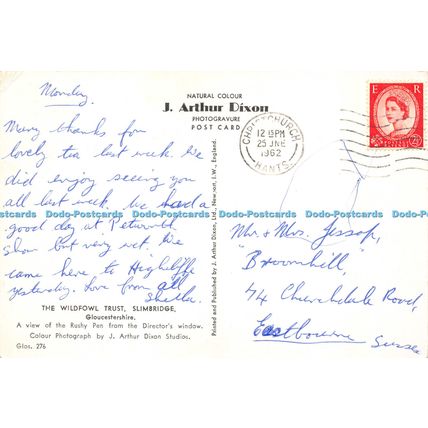 Monday.
Many thanks for
lovely tea last week. We
did enjoy seeing you
all last week. We had a
good day at Petworth
show but very wet. We
came here to Highcliffe
yesterday. Love from all
Sheila.
THE WILDFOWL TRUST, SLIMBRIDGE,
Gloucestershire.
A view of the Rushy Pen from the Director's window.
Colour Photograph by J. Arthur Dixon Studios.
Glos. 276
NATURAL COLOUR
J. Arthur Dixon
PHOTOGRAVURE
POST CARD
Printed and Published by J. Arthur Dixon, Ltd., Newport, I.W., England.
CHRISTCHURCH
12 15PM
25 JNE
1962
HANTS
E R
Mr & Mrs. Jessop,
"Broomhill,"
74 Churchdale Road,
Eastbourne
Sussex
Dodo-Postcards Dodo-Postcards Dodo-Postcards Dodo-Postcards Dodo-Postcards